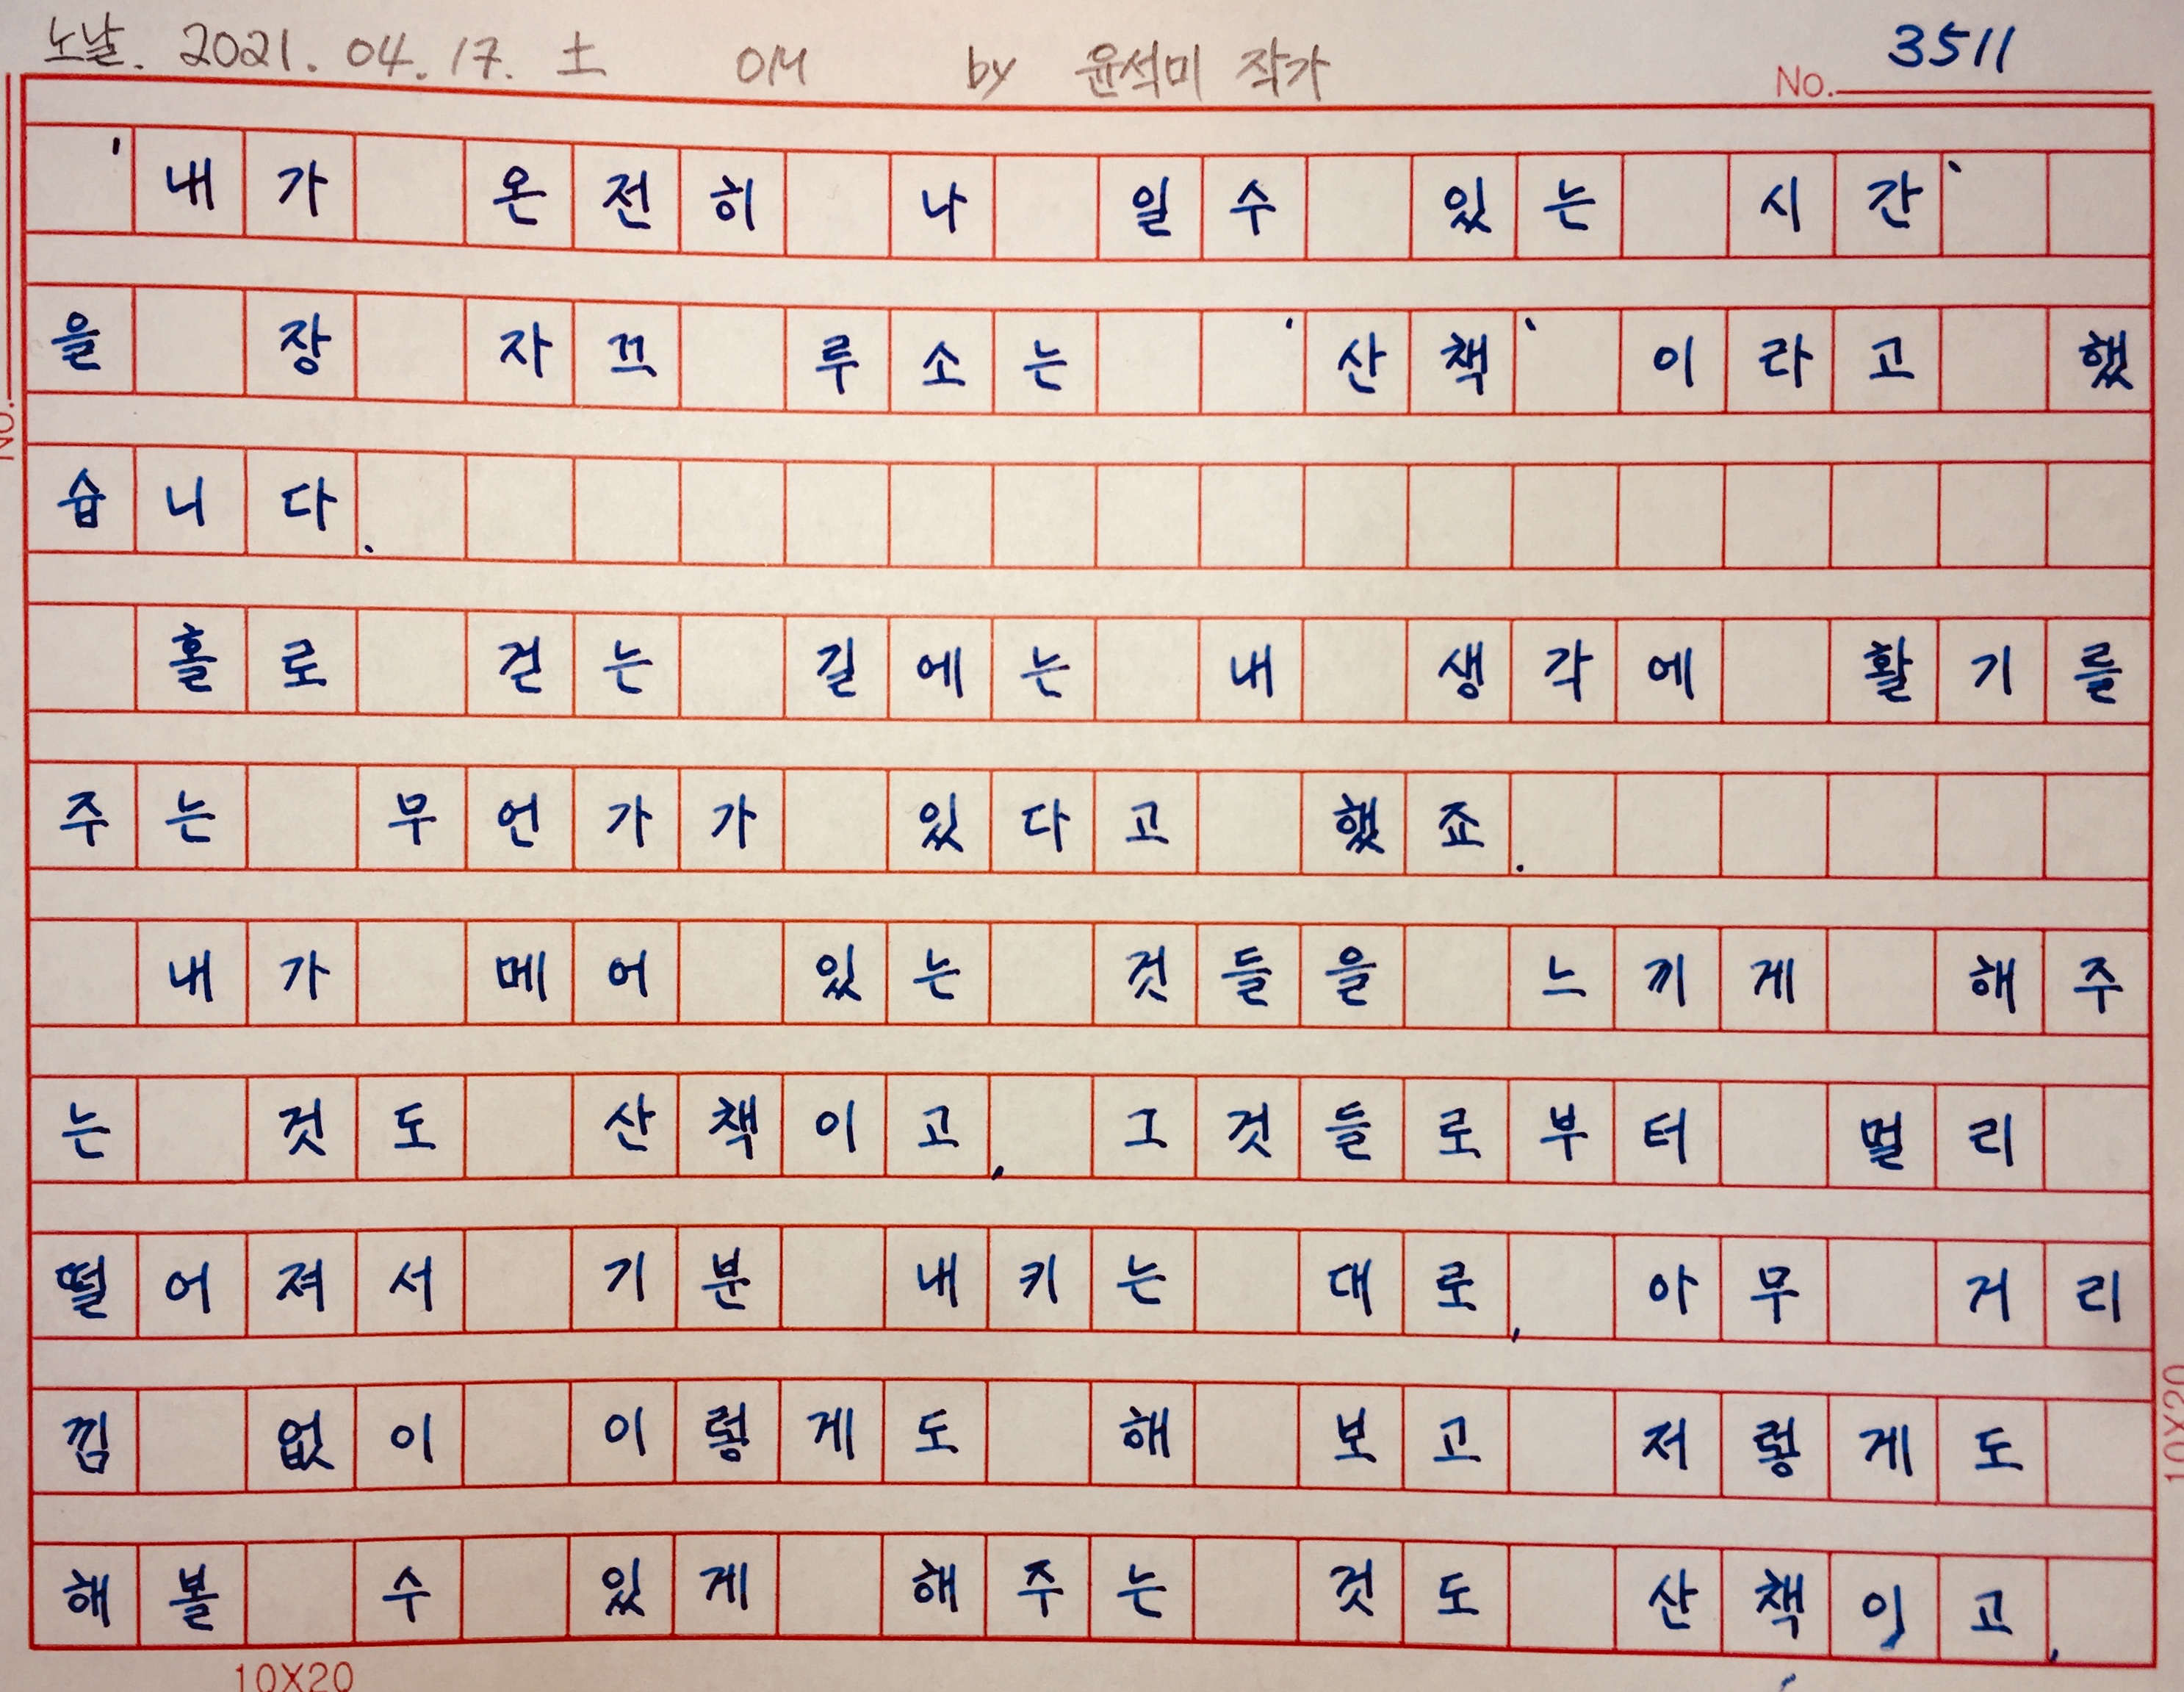 노날. 2021. 04. 17. 土 OM by 윤석미 작가
No. 3511
'내가 온전히 나 일수 있는 시간'
을 장 자끄 루소는 '산책' 이라고 했
습니다.
홀로 걷는 길에는 내 생각에 활기를
주는 무언가가 있다고 했죠.
내가 메어 있는 것들을 느끼게 해주
는 것도 산책이고, 그것들로부터 멀리
떨어져서 기분 내키는 대로, 아무 거리
낌 없이 이렇게도 해 보고 저렇게도
해볼 수 있게 해주는 것도 산책이고,
10X20
No.
10X20